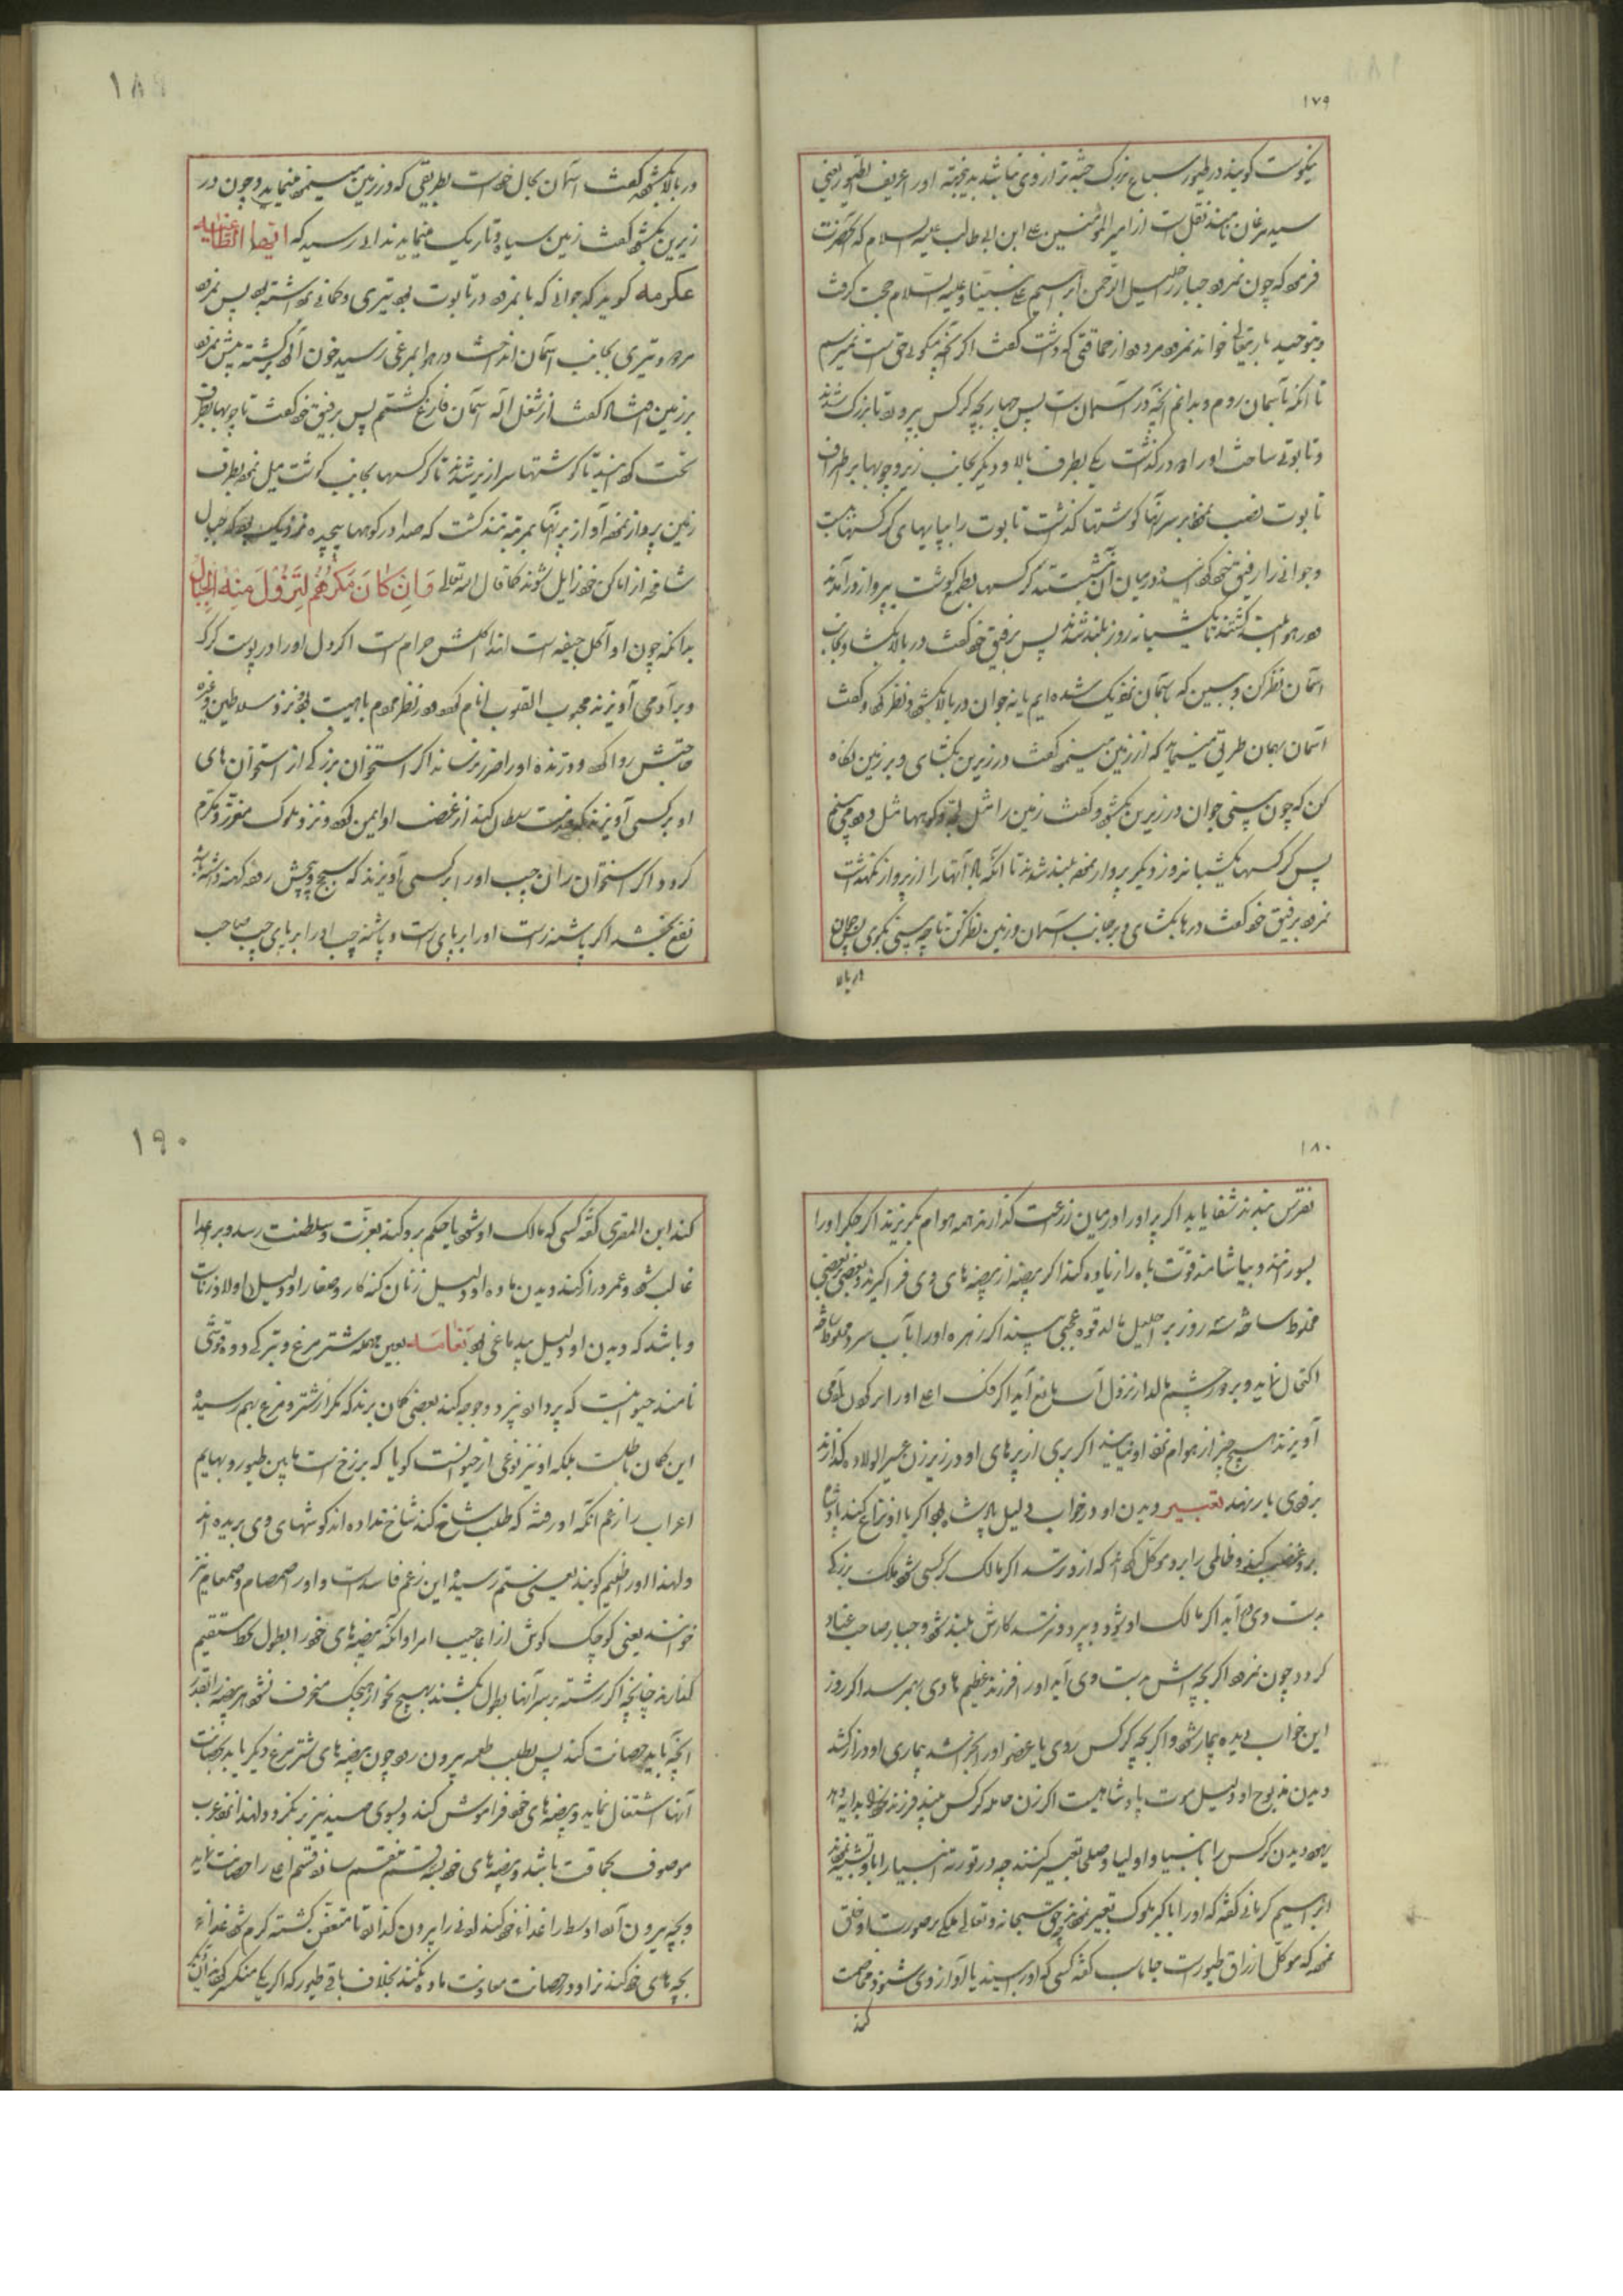 ۱۷۹
نیکوست کویند در طیور سباع بزرک جثه تر از وی نباشد
سید مرغان نامند نقل است از امیر المؤمنین علی ابن ابی طالب علیه السلام که آنحضرت
فرموده که چون نمرود جبار بر خلیل الرحمن ابراهیم علی نبینا وعلیه السلام حجت کرفت
وبتوحید باریتعالی خواند نمرود مردود از حماقتی که داشت کفت اکر آنچه میکوئی حق است نمیرسم
تا آنکه باسمان روم وبدانم آنچه در آسمان است پس چهار بچه کرکس پرورد تا بزرک شدند
وتابوتی ساخت اورا دو در کذاشت یکی بطرف بالا ودیکر بجانب زیر وچوبها بر اطراف
تابوت نصب نمود بر سر آنها کوشتها کذاشت تابوت را بپایهای کرکسها بست
وجوانی را رفیق خود کردانیده در میان آن نشستند کرکسها بطمع کوشت بپرواز در آمدند
ودر هوا کشتند تا یکشبانه روز بلند شدند پس برفیق خود کفت در بالا بکشا وبجانب
آسمان نظر کن وببین که بآسمان نزدیک شده ایم یا نه جوان در بالا بکشود ونظر کرد وکفت
آسمان بهمان طریق مینماید که از زمین میبینم کفت در زیرین بکشای وبر زمین نکاه
کن که چون بینی جوان در زیرین بکشود وکفت زمین را مثل وکوهها مثل دود می بینم
پس کرکسها یکشبانروز دیکر پرواز نموده بلند شدند تا آنکه باد آنها را از پرواز نکهداشت
نمرود برفیق خود کفت درها بکشای وبر جانب آسمان وزمین نظر کن تا چه بینی بکوی پس جوان
در بالا
۱۸۹
در بالا بکشود کفت آسمان بحال خود است بطریقی که در زمین میبینم مینماید وچون در
زیرین بکشود کفت زمین سیاه وتاریک مینماید ندائی رسید که ایها الطاغیه
عکرمه کوید که جوانی که با نمرود در تابوت بود تیری وکمانی برداشته بود پس نمرود
مردود تیری بجانب آسمان انداخت در هوا بمرغی رسید خون آلود برکشته پیش نمرود
بر زمین افتاد کفت از شغل اله آسمان فارغ کشتم پس برفیق خود کفت تا چوبها بطرف
تحت کردانید تا کوشتها سرازیر شدند تا کرکسها بجانب کوشت میل نموده بطرف
زمین پرواز نموده آواز پر آنها بمرتبه تند کشت که صدا در کوهها پیچیده نزدیک بود که جبال
شامخه از اماکن خود زایل شوند کما قال الله تعالی وَاِنْ کَانَ مَکْرُهُمْ لِتَزُولَ مِنْهُ الْجِبَالُ
بدانکه چون او آکل جیفه است لهذا اکلش حرام است اکر دل اورا در پوست کرک
وبر آدمی آویزند محبوب القلوب انام کردد ودر نظر مردم با هیبت بود ونزد سلاطین وغیره
حاجتش روا کردد ودرنده اورا ضرر نرساند اکر استخوان بزرکی از استخوان های
او بر کسی آویزند که خدمت سلطان کند از غضب او ایمن کردد ونزد ملوک معزز ومکرم
کردد واکر استخوان ران چپ اورا بر کسی آویزند که سحج وپیچش روده کهنه داشته باشد
نفع بخشد اکر پاشنه راست اورا بر پای راست وپاشنه چپ اورا بر پای چپ صاحب
۱۸۰
نقرس بندند شفا یابد اکر پر اورا در میان زراعت کذارند همه هوام بکریزند اکر جکر اورا
بسوزانند وبیاشامند قوت باه را زیاده کند اکر بیضه از بیضه های وی فرا کیرند وبعضی ببعضی
مخلوط ساخته سه روز بر احلیل مالد قوه عجیبی ببیند اکر زهره اورا بآب سرد مخلوط ساخته
اکتحال نماید وبر دور چشم مالد از نزول آب مانع آید اکر فک اعلی اورا بر کردن آدمی
آویزند هیچ چیز از هوام نزد او نیایند اکر پری از پرهای او در زیر زن عسیر الولاده کذارند
بزودی بار بنهد تعبیر دیدن او در خواب دلیل پادشاه بود اکر با او نزاع کند پادشاه
بر وغضب کند وظالمی را بر وموکل کرداند که ازو ترسد اکر مالک کرکسی شود ملک بزرکی
بدست وی در آید اکر مالک او بود وبپرد ونترسد کارش بلند شود وجبار صاحب عناد
کردد چون نمرود اکر بچه اش بدست وی آید اورا فرزند عظیم هادی بهمرسد اکر روز
این خواب دیده بیمار شود واکر بچه کرکس روی یا عضو اورا بخراشد بیماری او دراز کشد
دیدن مذبوح او دلیل موت پادشاهیست اکر زن حامله کرکس بیند فرزند خود را بدایه دهد
یهود دیدن کرکس را بانبیا واولیا وصلحا تعبیر کنند چه در توریة انبیا را باو تشبیه نموده اند
ابراهیم کرمانی کفته که اورا باکبر ملوک تعبیر نموده اند حق سبحانه وتعالی ملکی بر صورت او خلق
نموده که موکل ارزاق طیور است جاماسب کفته کسی که اورا بیند یا آواز وی شنود مخاصمت
کند
۱۹۰
کند ابن المقری کفته کسی که مالک او شود یا حکم بر وکند بعزت وسلطنت رسد وبر اعدا
غالب شود وعمر دراز کند ودیدن ماده او دلیل زنان کنه کار وصغار او دلیل اولاد زناست
وباشد که دیدن او دلیل بیدماغی بود نعامه بعین مهمله شتر مرغ وبترکی دوه قوشی
نامند حیوانیست که پر دارد نپرد وجوجه کند بعضی کمان برند که مکر از شتر ومرغ بهم رسیده
این کمان باطلست بلکه او نیز نوعی از حیوانست کویا که برزخ است مابین طیور وبهایم
اعراب را زعم آنکه او رفته که طلب شاخ کند شاخ نداده اند کوشهای وی بریده اند
ولهذا اورا ظلیم کویند یعنی ستم رسیده واین زعم فاسد است واورا صمصام وصمعام نیز
خوانند یعنی کوچک کوش از اعاجیب امر او آنکه بیضه های خود را بطول بخط مستقیم
کذارد چنانچه اکر رشته بر سر آنها بطول بکشند بهیچ نحو از هیچک منحرف نشود هر بیضه را بقدر
آنچه باید حضانت کند پس بطلب طعمه بیرون رود چون بیضه های شتر مرغ دیکر یابد بحضانت
آنها اشتغال نماید وبیضه های خود فراموش کند وبسوی نیز بر نکردد ولهذا نزد عرب
موصوف بحماقت باشد وبیضه های خود بسه قسم منقسم سازد قسم اعلی را حضانت نماید
وبچه بیرون آرد اوسط را غذاء خود کند ادنی را بیرون کذارد تا متعفن کشته کرم شود غذاء
بچه های خود کند نر او در حضانت معاونت ماده نکند بخلاف باقی طیور که اکر یکی متکسر